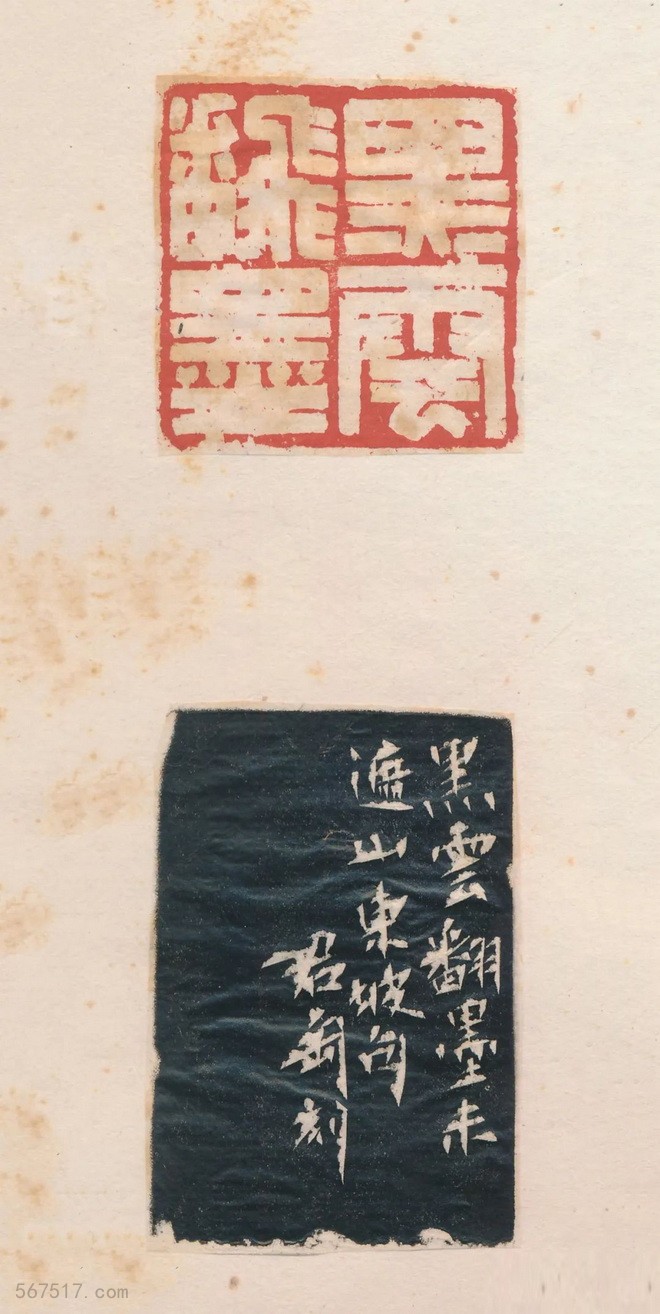 黑雲
翻墨
黑雲翻墨未
遮山東坡句
君匋刻
567517.com